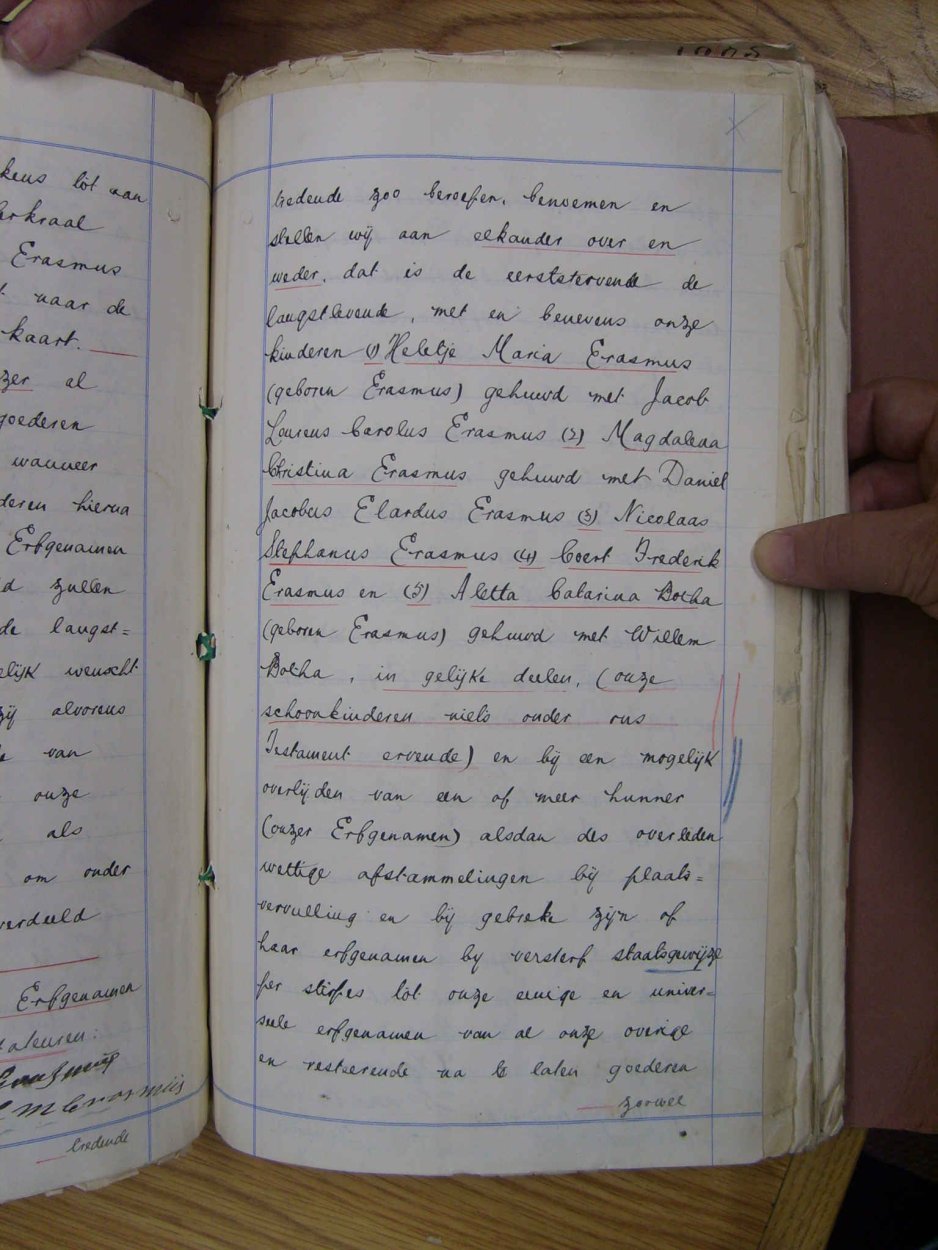 kens tot aan
erkraal
Erasmus
naar de
kaart.
zer al
goederen
wanneer
deren hierna
Erfgenamen
d zullen
de langst=
elijk wenscht
zij alvorens
van
onze
als
om onder
verdeeld
Erfgenamen
tredende
tredende zoo beroepen, benoemen en
stellen wij aan elkander over en
weder, dat is de eerststervende de
langstlevende, met en benevens onze
kinderen (1) Heletje Maria Erasmus
(geboren Erasmus) gehuwd met Jacob
Lourens Carolus Erasmus (2) Magdalena
Christina Erasmus gehuwd met Daniel
Jacobus Elardus Erasmus (3) Nicolaas
Stephanus Erasmus (4) Coert Frederik
Erasmus en (5) Aletta Catarina Botha
(geboren Erasmus) gehuwd met Willem
Botha, in gelijke deelen, (onze
schoonkinderen niets onder ons
Testament ervende) en bij een mogelijk
overlijden van een of meer hunner
(onzer Erfgenamen) alsdan des overleden
wettige afstammelingen bij plaats=
vervulling en bij gebreke zijn of
haar erfgenamen by versterf staaksgewijze
per stirpes tot onze eenige en univer=
seele erfgenamen van al onze overige
en resteerende na te laten goederen
zoowel